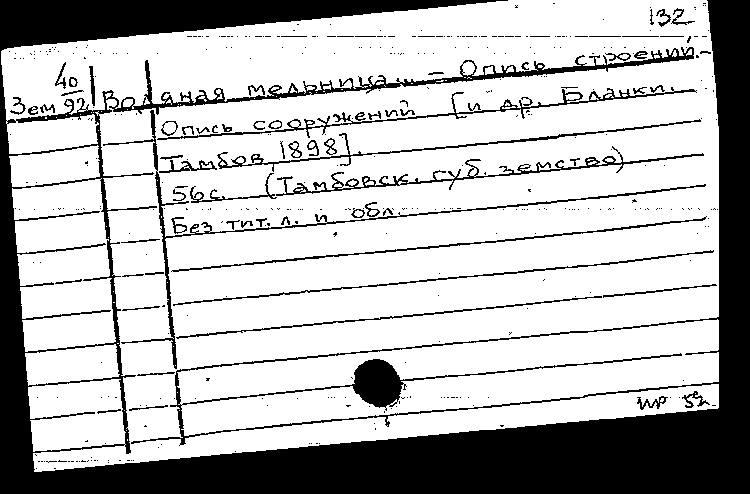 132
40
Зем 92 Водяная мельница... – Опись строений. –
Опись сооружений [и др. Бланки.
Тамбов, 1898].
56 с. (Тамбовск. губ. земство)
Без тит. л. и обл.